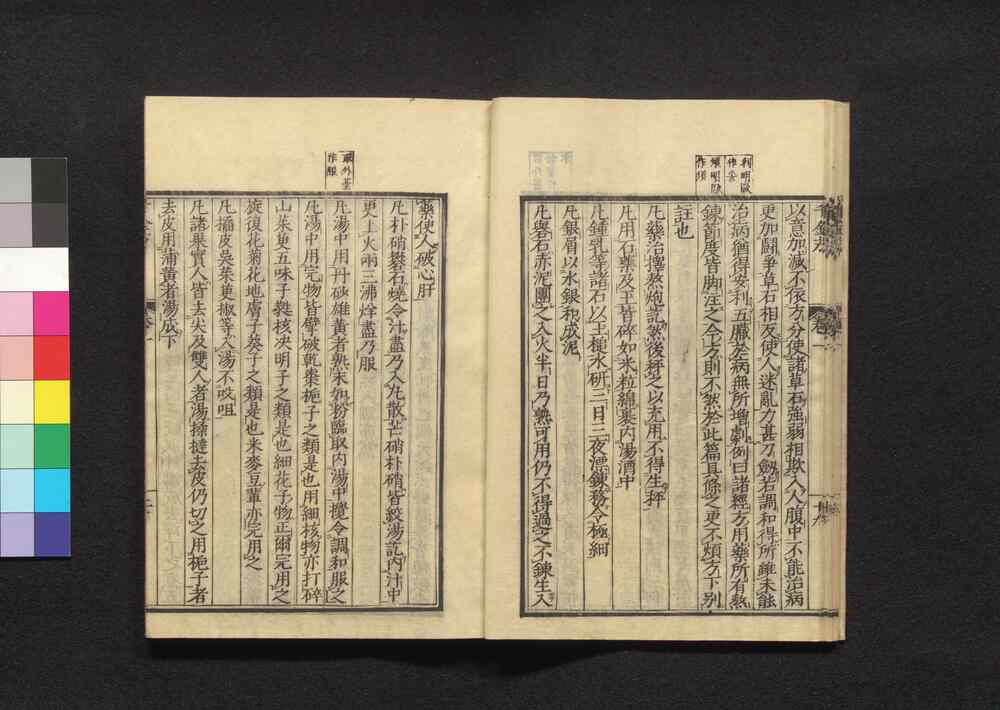 利明歐
作害
煩明歐
作須
以意加減不依方分使諸草石強弱相欺入人腹中不能治病
更加鬪爭草石相反使人迷亂力甚刀劒若調和得所雖未能
治病猶得安利五臟於病無所增劇例曰諸經方用藥所有熬
鍊節度皆脚注之今方則不然於此篇具條之更不煩方下別
註也
凡藥治擇熬炮訖然後秤之以充用不得生秤
凡用石藥及玉皆碎如米粒綿裹内湯酒中
凡鍾乳等諸石以玉槌水研三日三夜漂鍊務令極細
凡銀屑以水銀和成泥
凡礜石赤泥團之入火半日乃熟可用仍不得過之不鍊生入
藥使人破心肝
凡朴硝礬石燒令汁盡乃入丸散芒硝朴硝皆絞湯訖内汁中
更上火兩三沸烊盡乃服
凡湯中用丹砂雄黄者熟末如粉臨服内湯中攪令調和服之
凡湯中用完物皆擘破乾棗梔子之類是也用細核物亦打碎
山茱萸五味子蕤核決明子之類是也細花子物正爾完用之
旋復花菊花地膚子葵子之類是也米麥豆輩亦完用之
凡橘皮吳茱萸椒等入湯不㕮咀
凡諸果實人皆去尖及雙人者湯揉撻去皮仍切之用梔子者
去皮用蒲黄者湯成下